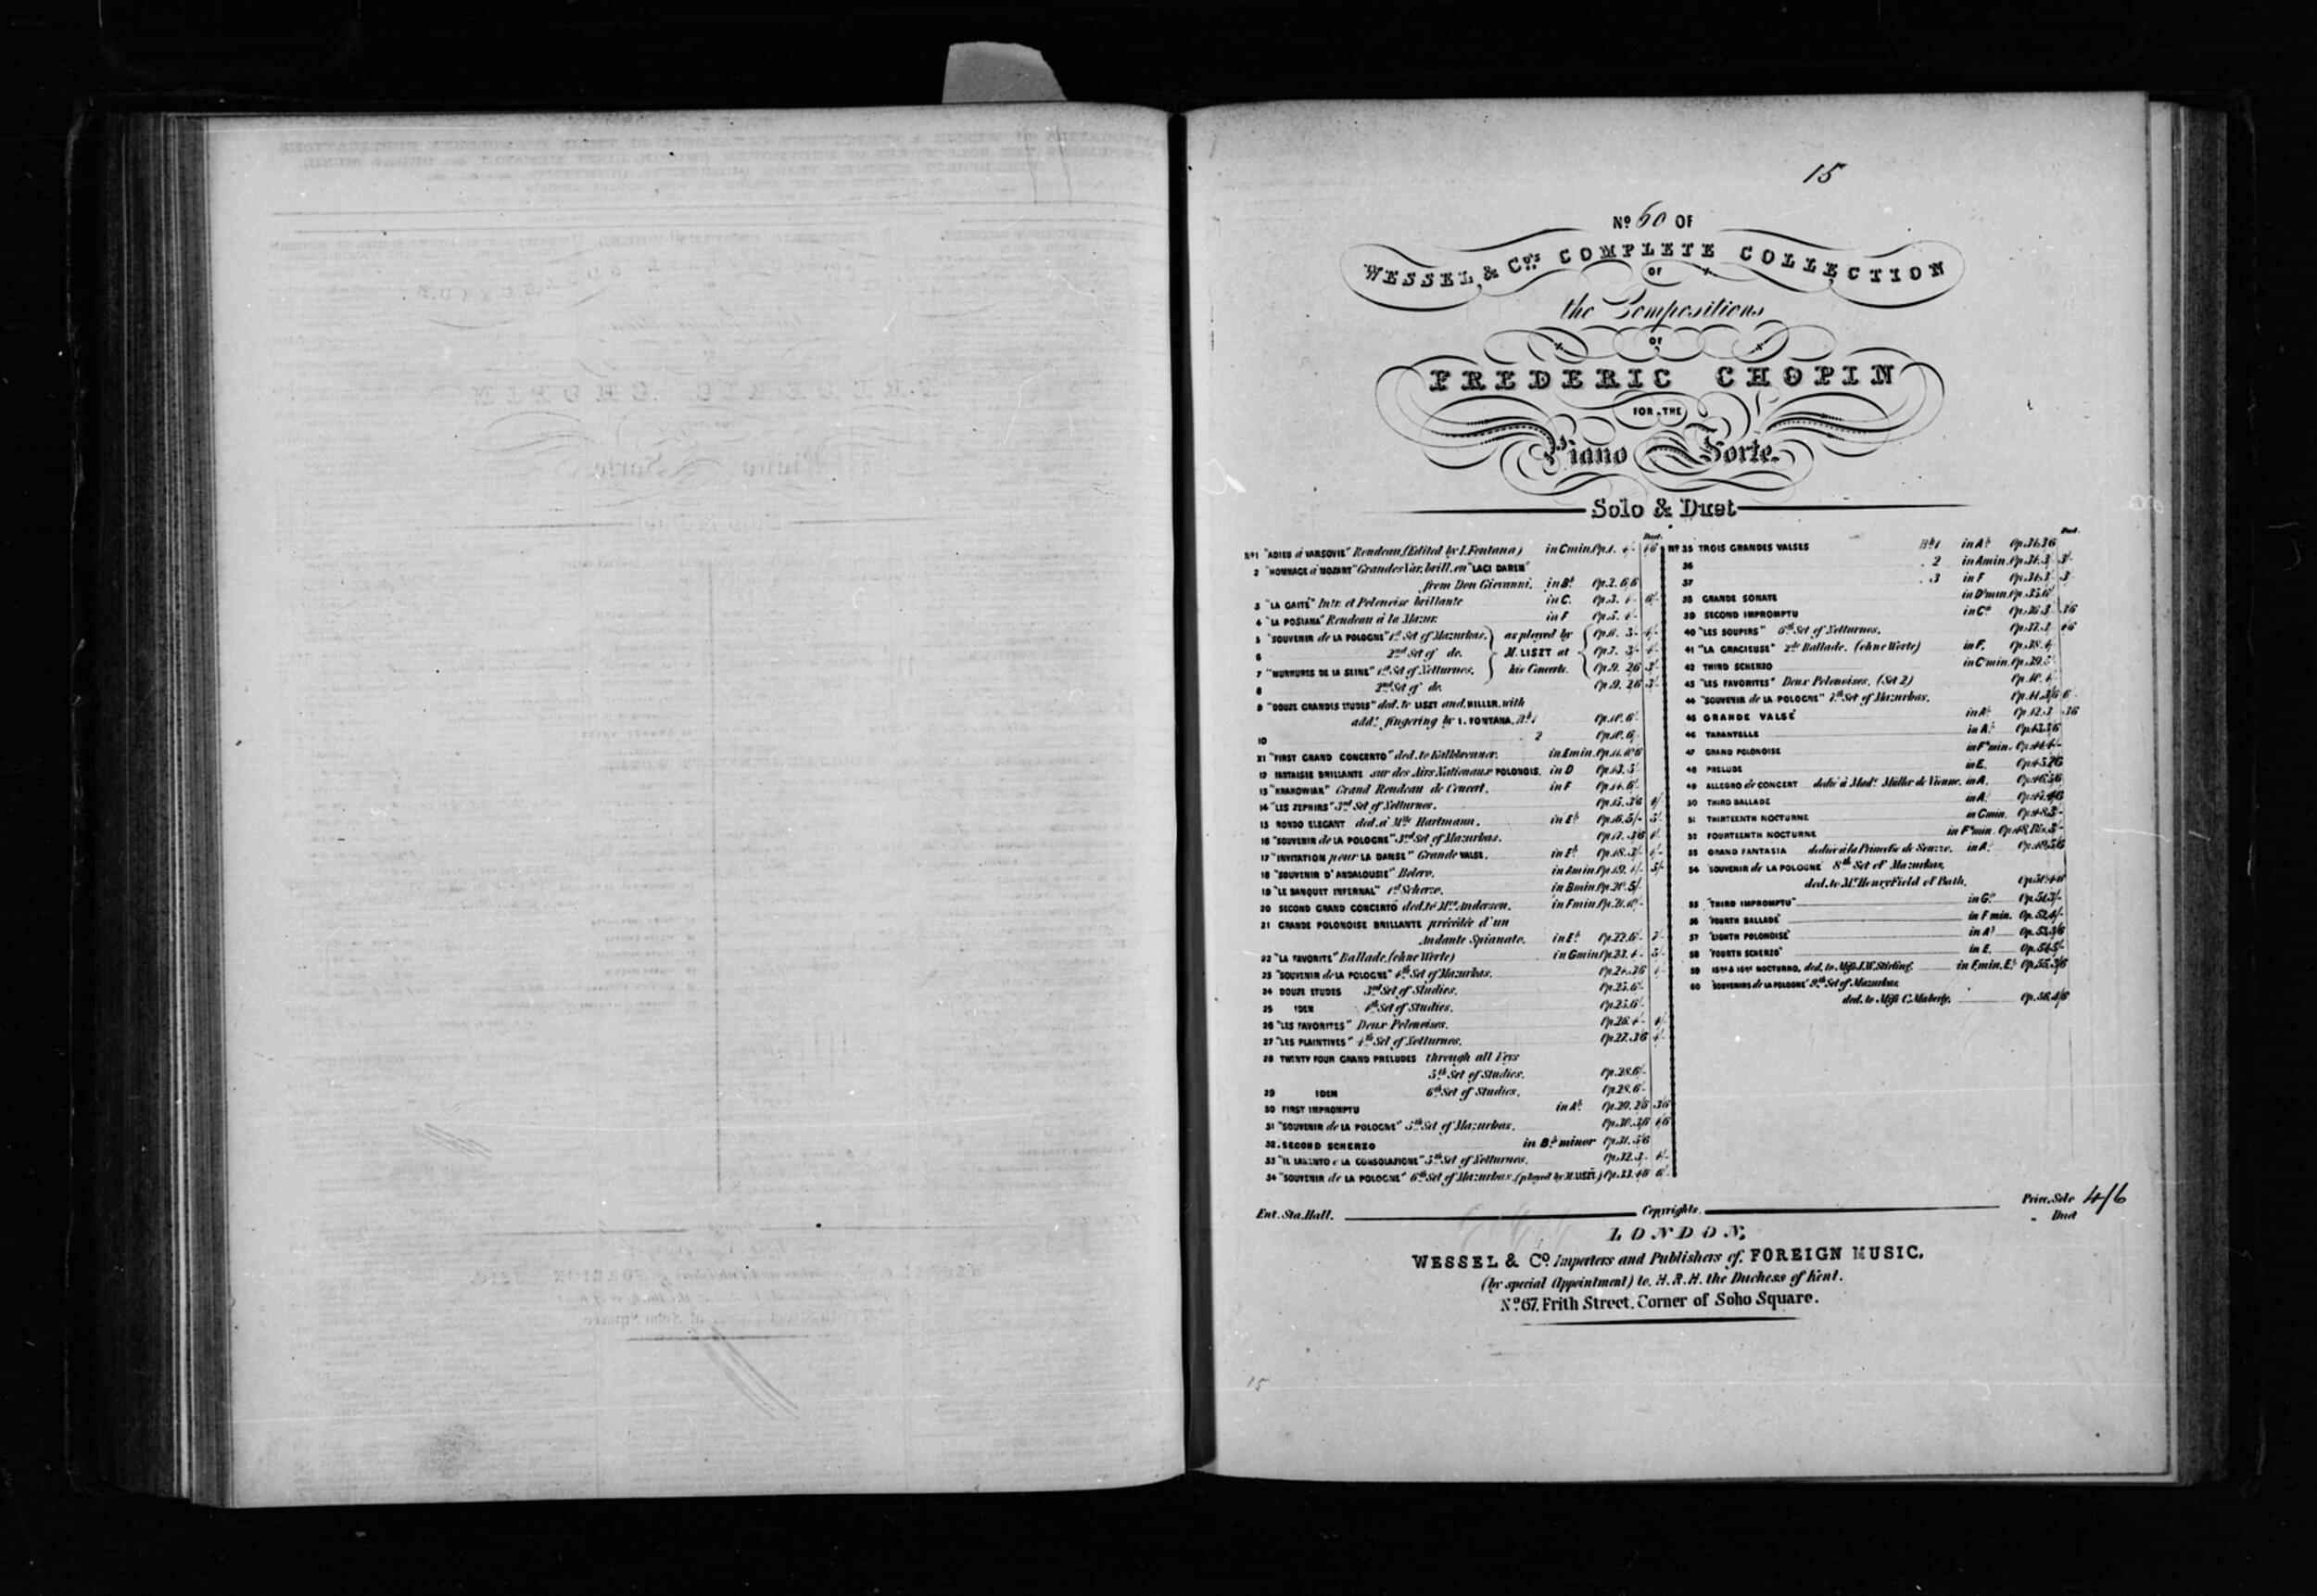 15
No. 60 OF
WESSEL & Co's. COMPLETE COLLECTION
OF
the Compositions
OF
FREDERIC CHOPIN
FOR THE
Piano Forte.
Solo & Duet
Duet.
No 1 "ADIEU à VARSOVIE" Rondeau, (Edited by I. Fontana) in C min. Op. 1. 4/- 4/6
2 "HOMMAGE à MOZART" Grandes Var. brill. en "LACI DAREM"
from Don Giovanni. in Bb. Op. 2. 6/6
3 "LA GAITÉ" Intr. et Polonoise brillante in C. Op. 3. 4/- 6/-
4 "LA POSIANA" Rondeau à la Mazur. in F Op. 5. 4/-
5 "SOUVENIR de LA POLOGNE" 1st Set of Mazurkas. as played by Op. 6. 3/- 4/-
6 2nd Set of do. M. LISZT at Op. 7. 3/- 4/-
7 "MURMURES DE LA SEINE" 1st Set of Notturnos. his Concerts. Op. 9. 2/6 3/-
8 2nd Set of do. Op. 9. 2/6 3/-
9 "DOUZE GRANDES ETUDES" ded. to LISZT and HILLER, with
addl. fingering by I. FONTANA. Bk 1 Op. 10. 6/-
10 2 Op. 10. 6/-
11 "FIRST GRAND CONCERTO" ded. to Kalkbrenner. in E min. Op. 11.
12 FANTAISIE BRILLANTE sur des Airs Nationaux POLONOIS. in D Op. 13. 5/-
13 "KRAKOWIAK" Grand Rondeau de Concert. in F Op. 14. 6/-
14 "LES ZEPHIRS" 3rd Set of Notturnos. Op. 15. 3/6 4/-
15 RONDO ELEGANT ded. à Mlle Hartmann. in Eb Op. 16. 5/- 5/-
16 "SOUVENIR de LA POLOGNE" 3rd Set of Mazurkas. Op. 17. 3/6 4/-
17 "INVITATION pour LA DANSE" Grande VALSE. in Eb Op. 18. 3/- 4/-
18 "SOUVENIR D'ANDALOUSIE" Bolero. in A min. Op. 19. 4/- 5/-
19 "LE BANQUET INFERNAL" 1st Scherzo. in B min Op. 20. 5/-
20 SECOND GRAND CONCERTO ded. to Mrs Anderson. in F min. Op. 21.
21 GRANDE POLONOISE BRILLANTE précédée d'un
Andante Spianato. in Eb Op. 22. 6/- 7/-
22 "LA FAVORITE" Ballade, (ohne Worte) in G min Op. 23. 4/- 5/-
23 "SOUVENIR de LA POLOGNE" 4th Set of Mazurkas. Op. 24. 3/6
24 DOUZE ETUDES 3rd Set of Studies. Op. 25. 6/-
25 IDEM 4th Set of Studies. Op. 25. 6/-
26 "LES FAVORITES" Deux Polonoises. Op. 26. 4/- 4/-
27 "LES PLAINTIVES" 4th Set of Notturnos. Op. 27. 3/6 4/-
28 TWENTY FOUR GRAND PRELUDES through all Keys
5th Set of Studies. Op. 28. 6/-
29 IDEM 6th Set of Studies. Op. 28. 6/-
30 FIRST IMPROMPTU in Ab. Op. 29. 2/6 3/6
31 "SOUVENIR de LA POLOGNE" 5th Set of Mazurkas. Op. 30. 3/6 4/6
32. SECOND SCHERZO in Bb minor Op. 31. 5/6
33 "IL LAMENTO e LA CONSOLAZIONE" 5th Set of Notturnos. Op. 32. 3/- 4/-
34 "SOUVENIR de LA POLOGNE" 6th Set of Mazurkas (played by M. LISZT) Op. 33. 4/6 6/-
Duet.
No 35 TROIS GRANDES VALSES Bk 1 in Ab Op. 34. 3/6
36 2 in A min. Op. 34. 3/- 3/-
37 3 in F Op. 34. 3/- 3/-
38 GRANDE SONATE Op. 35. 6/-
39 SECOND IMPROMPTU Op. 36. 3/- 3/6
40 "LES SOUPIRS" 6th Set of Notturnos. Op. 37. 3/- 4/6
41 "LA GRACIEUSE" 2de Ballade, (ohne Worte) in F. Op. 38. 4/-
42 THIRD SCHERZO Op. 39. 5/-
43 "LES FAVORITES" Deux Polonoises. (Set 2) Op. 40. 4/-
44 "SOUVENIR de LA POLOGNE" 7th Set of Mazurkas. Op. 41. 3/6 6/-
45 GRANDE VALSE in Ab Op. 42. 3/- 3/6
46 TARANTELLE in Ab Op. 43. 3/6
47 GRAND POLONOISE in F# min. Op. 44. 4/-
48 PRELUDE in E. Op. 45. 2/6
49 ALLEGRO de CONCERT dedié à Madlle Müller de Vienne. in A. Op. 46. 5/6
50 THIRD BALLADE in Ab Op. 47. 4/6
51 THIRTEENTH NOCTURNE in C min. Op. 48. 3/-
52 FOURTEENTH NOCTURNE in F# min. Op. 48. Bis. 3/-
53 GRAND FANTASIA dediée à la Princesse de Souzzo. in Ab Op. 49. 5/6
54 "SOUVENIR de LA POLOGNE" 8th Set of Mazurkas.
ded. to Mr Henry Field of Bath. Op. 50. 4/6
55 "THIRD IMPROMPTU" in Gb Op. 51. 3/-
56 "FOURTH BALLADE" in F min. Op. 52. 4/-
57 "EIGHTH POLONOISE" in Ab Op. 53. 3/6
58 "FOURTH SCHERZO" in E. Op. 54. 5/-
59 15me & 16me NOCTURNO, ded. to Miss J. W. Stirling. in F min. Eb Op. 55. 3/6
60 "SOUVENIRS de LA POLOGNE" 9th Set of Mazurkas
ded. to Miss C. Maberly. Op. 56. 4/6
Ent. Sta. Hall. Copyrights. Price. Solo 4/6
" Duet
LONDON,
WESSEL & Co. Importers and Publishers of, FOREIGN MUSIC.
(by special Appointment) to, H.R.H. the Duchess of Kent.
No. 67, Frith Street, Corner of Soho Square.
15